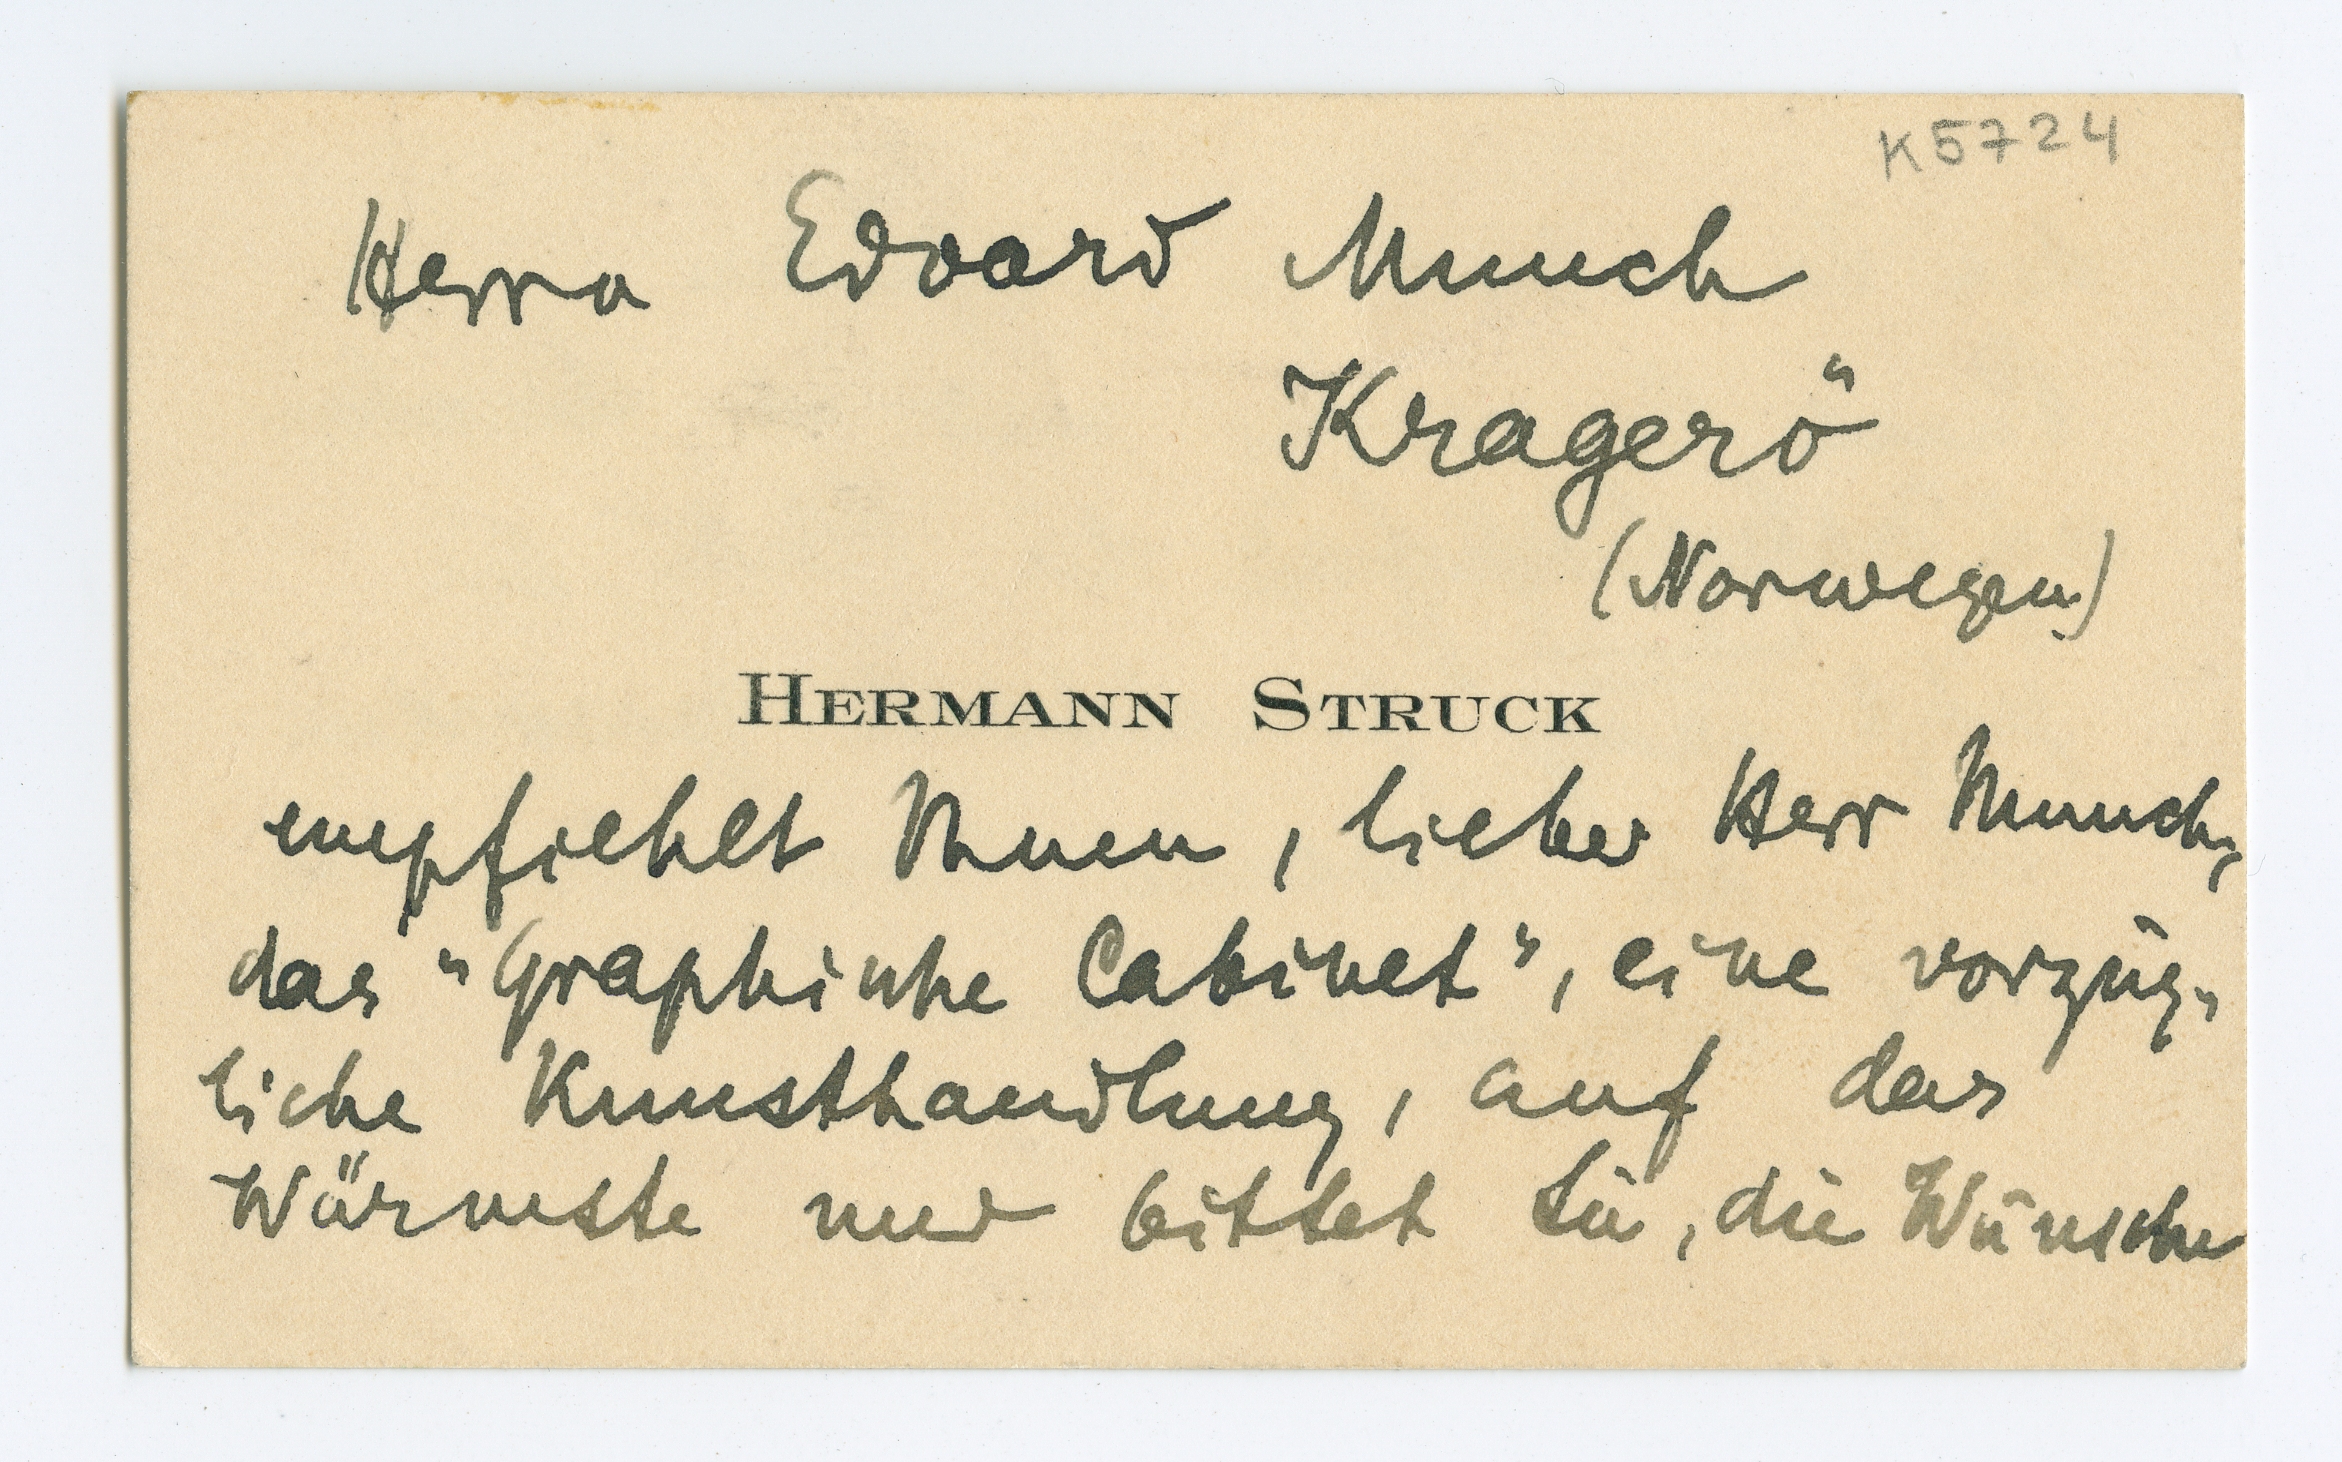 K5724
Herrn Edvard Munch
Kragerö
(Norwegen)
HERMANN STRUCK
empfiehlt Ihnen, lieber Herr Munch,
das "Graphische Cabinet", eine vorzüg-
liche Kunsthandlung, auf das
Wärmste und bittet Sie, die Wünsche